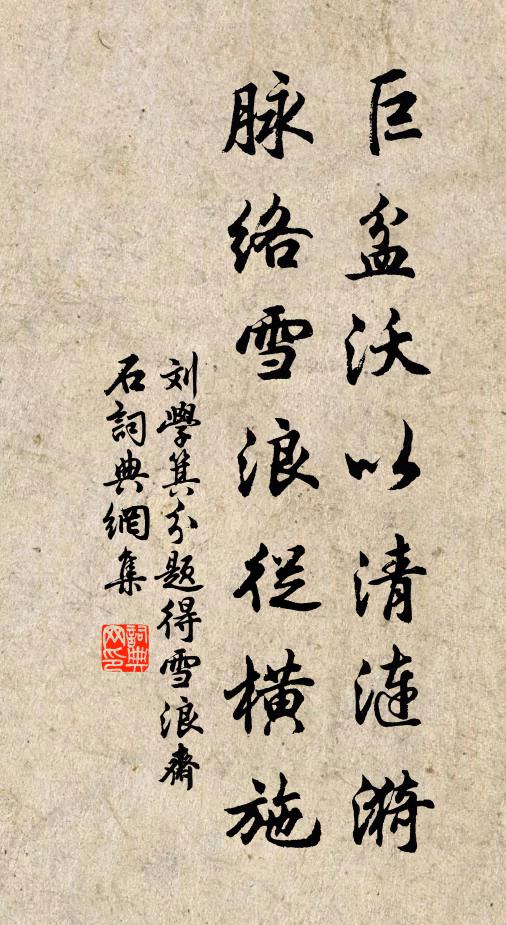 巨盆沃以清漣漪
脉络雪浪從橫施
刘學箕分題得雪浪齋
石詞典網集
詞典网印